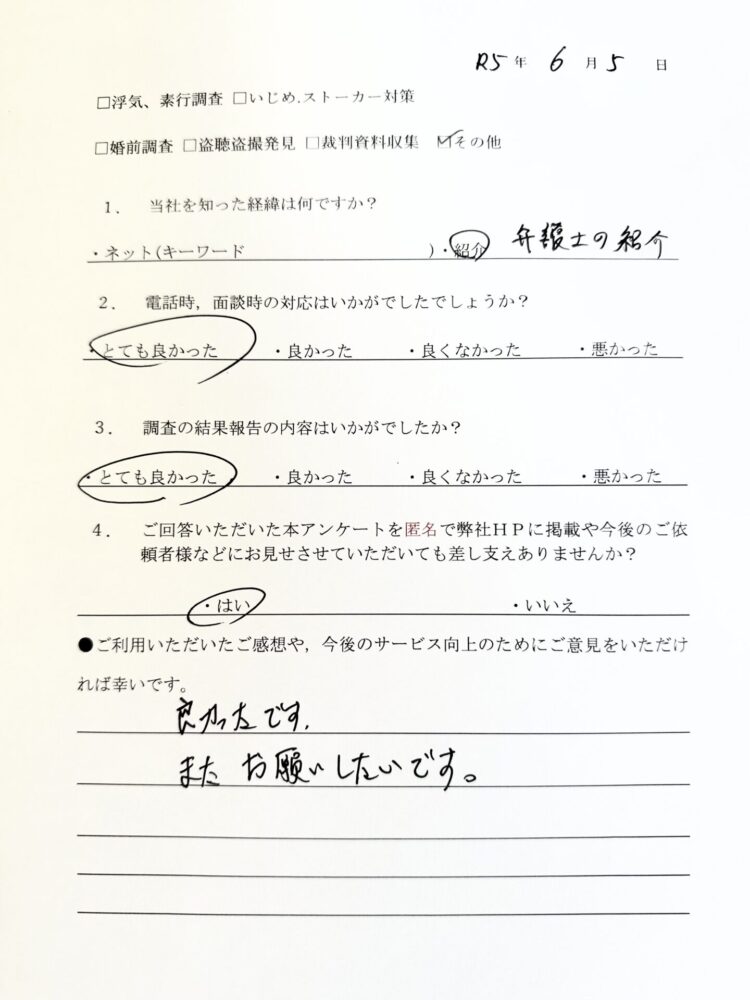 R5年 6月5日
□浮気、素行調査 □いじめ.ストーカー対策
□婚前調査 □盗聴盗撮発見 □裁判資料収集 ☑その他
1. 当社を知った経緯は何ですか？
・ネット(キーワード )・紹介 弁護士の紹介
2. 電話時，面談時の対応はいかがでしたでしょうか？
・とても良かった ・良かった ・良くなかった ・悪かった
3. 調査の結果報告の内容はいかがでしたか？
・とても良かった ・良かった ・良くなかった ・悪かった
4. ご回答いただいた本アンケートを匿名で弊社ＨＰに掲載や今後のご依
頼者様などにお見せさせていただいても差し支えありませんか？
・はい ・いいえ
●ご利用いただいたご感想や，今後のサービス向上のためにご意見をいただけ
れば幸いです。
良かったです.
またお願いしたいです。